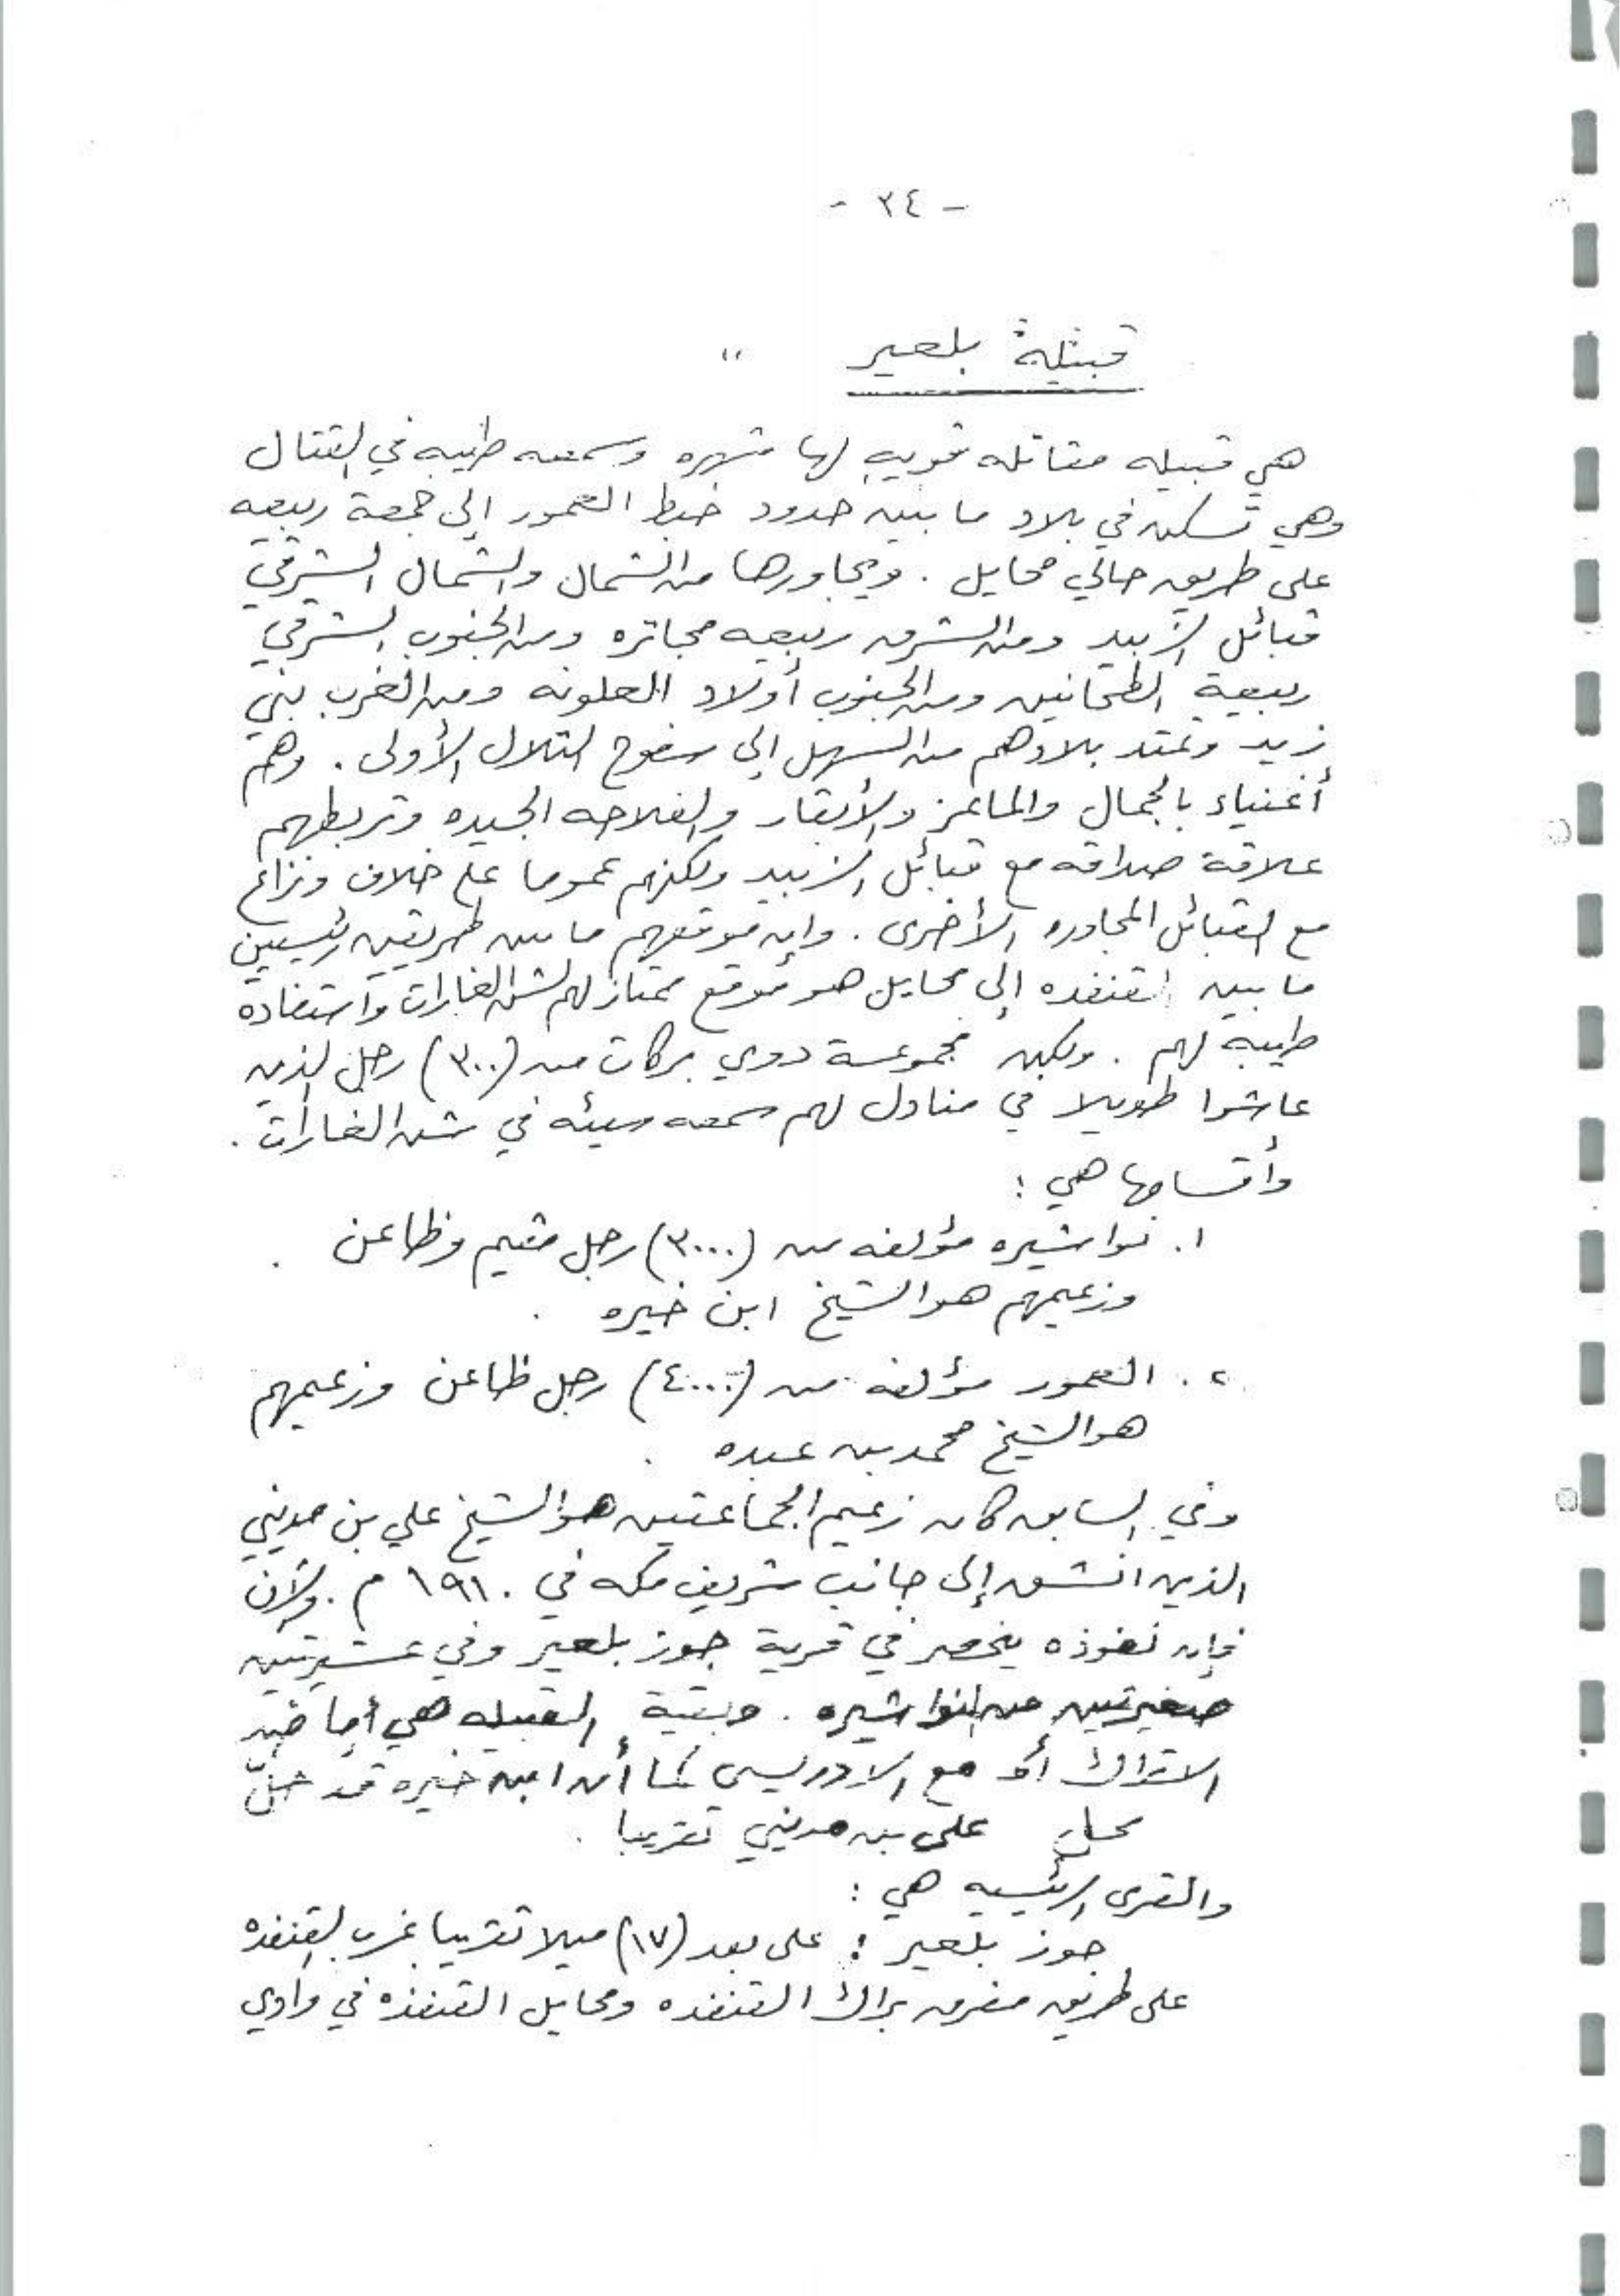 - ٣٤ -
قبيلة بلعير "
هي قبيله مقاتله قويه لها شهره وسمعه طيبه في القتال
وهي تسكن في بلاد ما بين حدود خبط العمور إلى جمعة ربيعه
على طريق حالي محايل . ويجاورها من الشمال والشمال الشرقي
قبائل الزبيد ومن الشرق ربيعه مجاتره ومن الجنوب الشرقي
ربيعية الطحانين ومن الجنوب أولاد العلونه ومن الغرب بني
زيد وتمتد بلادهم من السهل إلى سفوح التلال الأولى . وهم
أغنياء بالجمال والماعز والأبقار والفلاحه الجيده وتربطهم
علاقة صداقه مع قبائل الزبيد ولكنهم عموما على خلاف ونزاع
مع القبائل المجاوره الأخرى . وإن موقعهم ما بين طريقين رئيسيين
ما بين القنفذه إلى محايل هو موقع ممتاز لهم لشن الغارات واستفادة
طيبة لهم . ولكن مجموعة دوي بركات من (٣٠٠) رجل الذين
عاشوا طويلا في مناول لهم سمعه سيئه في شن الغارات .
وأقسامها هي :
١. نواشيره مؤلفه من (٣٠٠٠) رجل مقيم وظاعن .
وزعيمهم هو الشيخ ابن خيره .
٢. العمور مؤلفه من (٤٠٠٠) رجل ظاعن وزعيمهم
هو الشيخ محمد بن عبده .
وفي السابق كان زعيم الجماعتين هو الشيخ علي بن مديني
الذين انشق إلى جانب شريف مكه في ١٩١٠ م . والآن
فإن نفوذه ينحصر في قرية جوز بلعير وفي عشيرتين
صغيرتين من النواشيره . وبقية القبيله هي أما ضد
الاتراك أو مع الادريسي كما أن ابن خيره قد حلّ
محل علي بن مديني تقريبا .
والقرى الرئيسيه هي :
جوز بلعير : على بعد (١٧) ميلا تقريبا غرب القنفذه
على طريق مفرق براك القنفذه ومحايل القنفذه في وادي